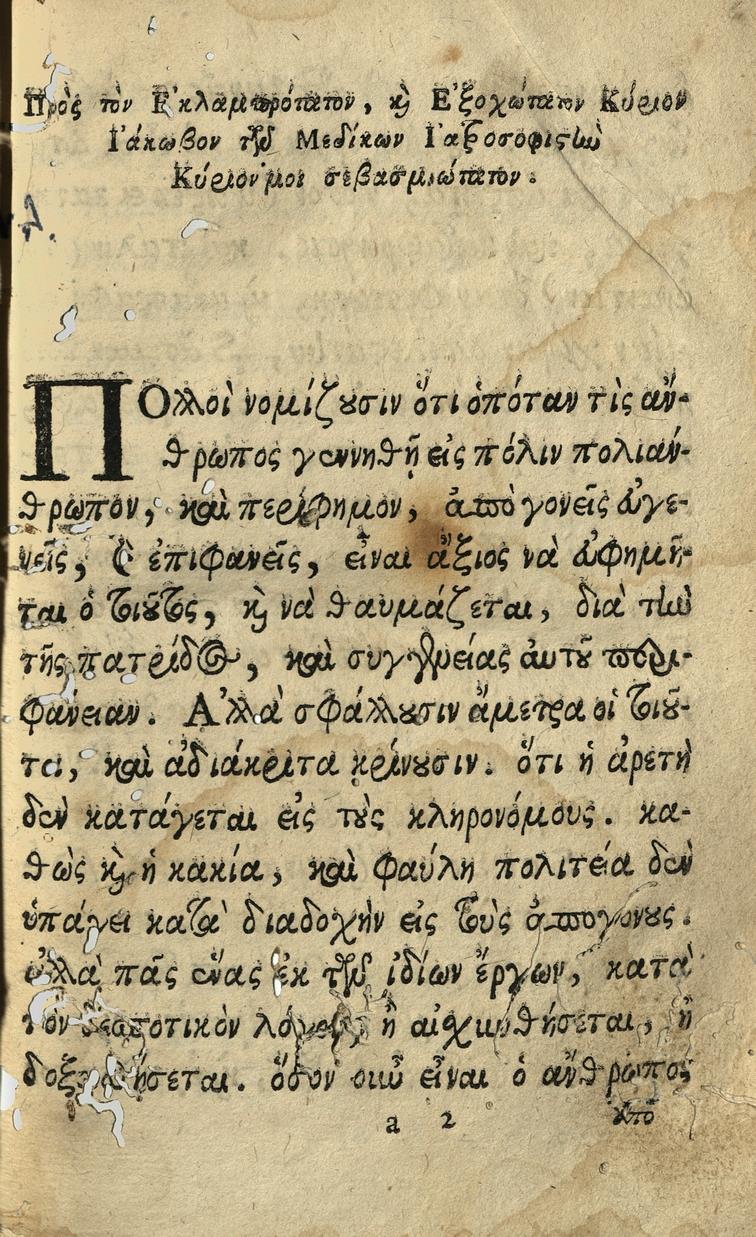 Πρὸς τὸν Ἐκλαμπρότατον, καὶ Ἐξοχώτατον Κύριον
Ἰάκωβον τῶν Μεδίκων Ἰατροσοφιστὴν
Κύριόν μοι σεβασμιώτατον.
ΠΟλλοὶ νομίζουσιν ὅτι ὁπόταν τὶς ἄν-
θρωπος γεννηθῇ εἰς πόλιν πολιάν-
θρωπον, καὶ περίφημον, ἀπὸ γονεῖς εὐγε-
νεῖς, καὶ ἐπιφανεῖς, εἶναι ἄξιος νὰ εὐφημῆ-
ται ὁ τοιοῦτος, καὶ νὰ θαυμάζεται, διὰ τὴν
τῆς πατρίδος, καὶ συγγενείας αὐτοῦ περι-
φάνειαν. Ἀλλὰ σφάλλουσιν ἄμετρα οἱ τοιοῦ-
τοι, καὶ ἀδιάκριτα κρίνουσιν. ὅτι ἡ ἀρετὴ
δὲν κατάγεται εἰς τοὺς κληρονόμους. κα-
θὼς καὶ ἡ κακία, καὶ φαύλη πολιτεία δὲν
ὑπάγει κατὰ διαδοχὴν εἰς τοὺς ἀπογόνους.
ἀλλὰ πᾶς ἕνας ἐκ τῶν ἰδίων ἔργων, κατὰ
τὸν δεσποτικὸν λόγον, ἢ αἰσχυνθήσεται, ἢ
δοξασθήσεται. ὅσον οὖν εἶναι ὁ ἄνθρωπος
a 2 ἀπὸ